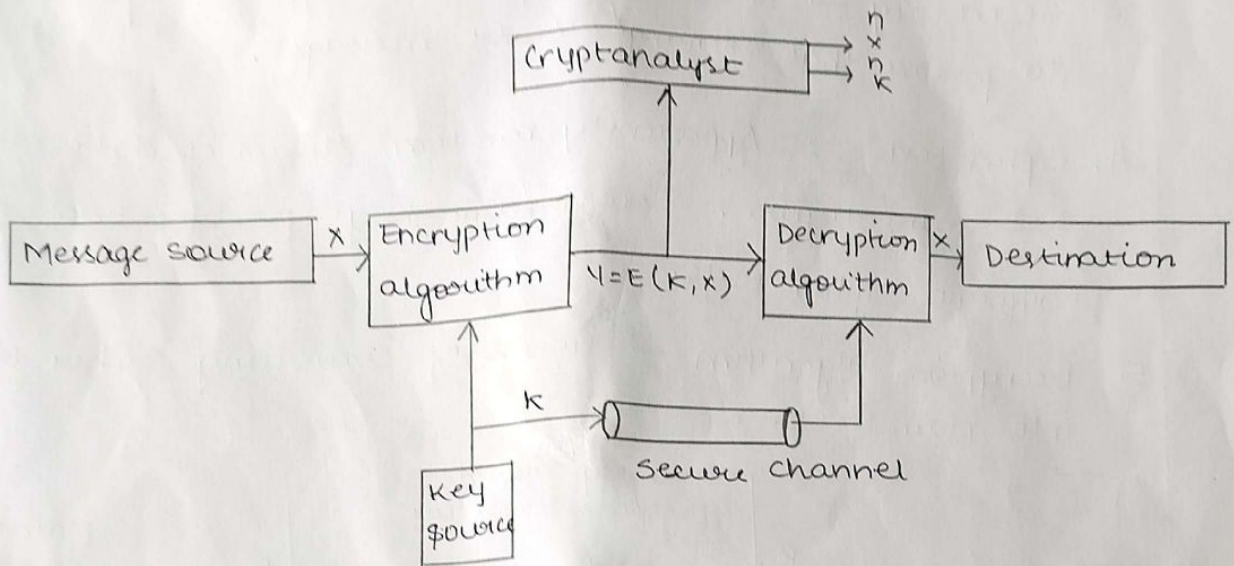 Cryptanalyst
n
x
n
k
Message source
X
Encryption
algorithm
Y=E(K,X)
Decryption
algorithm
X
Destination
K
Secure channel
Key
source